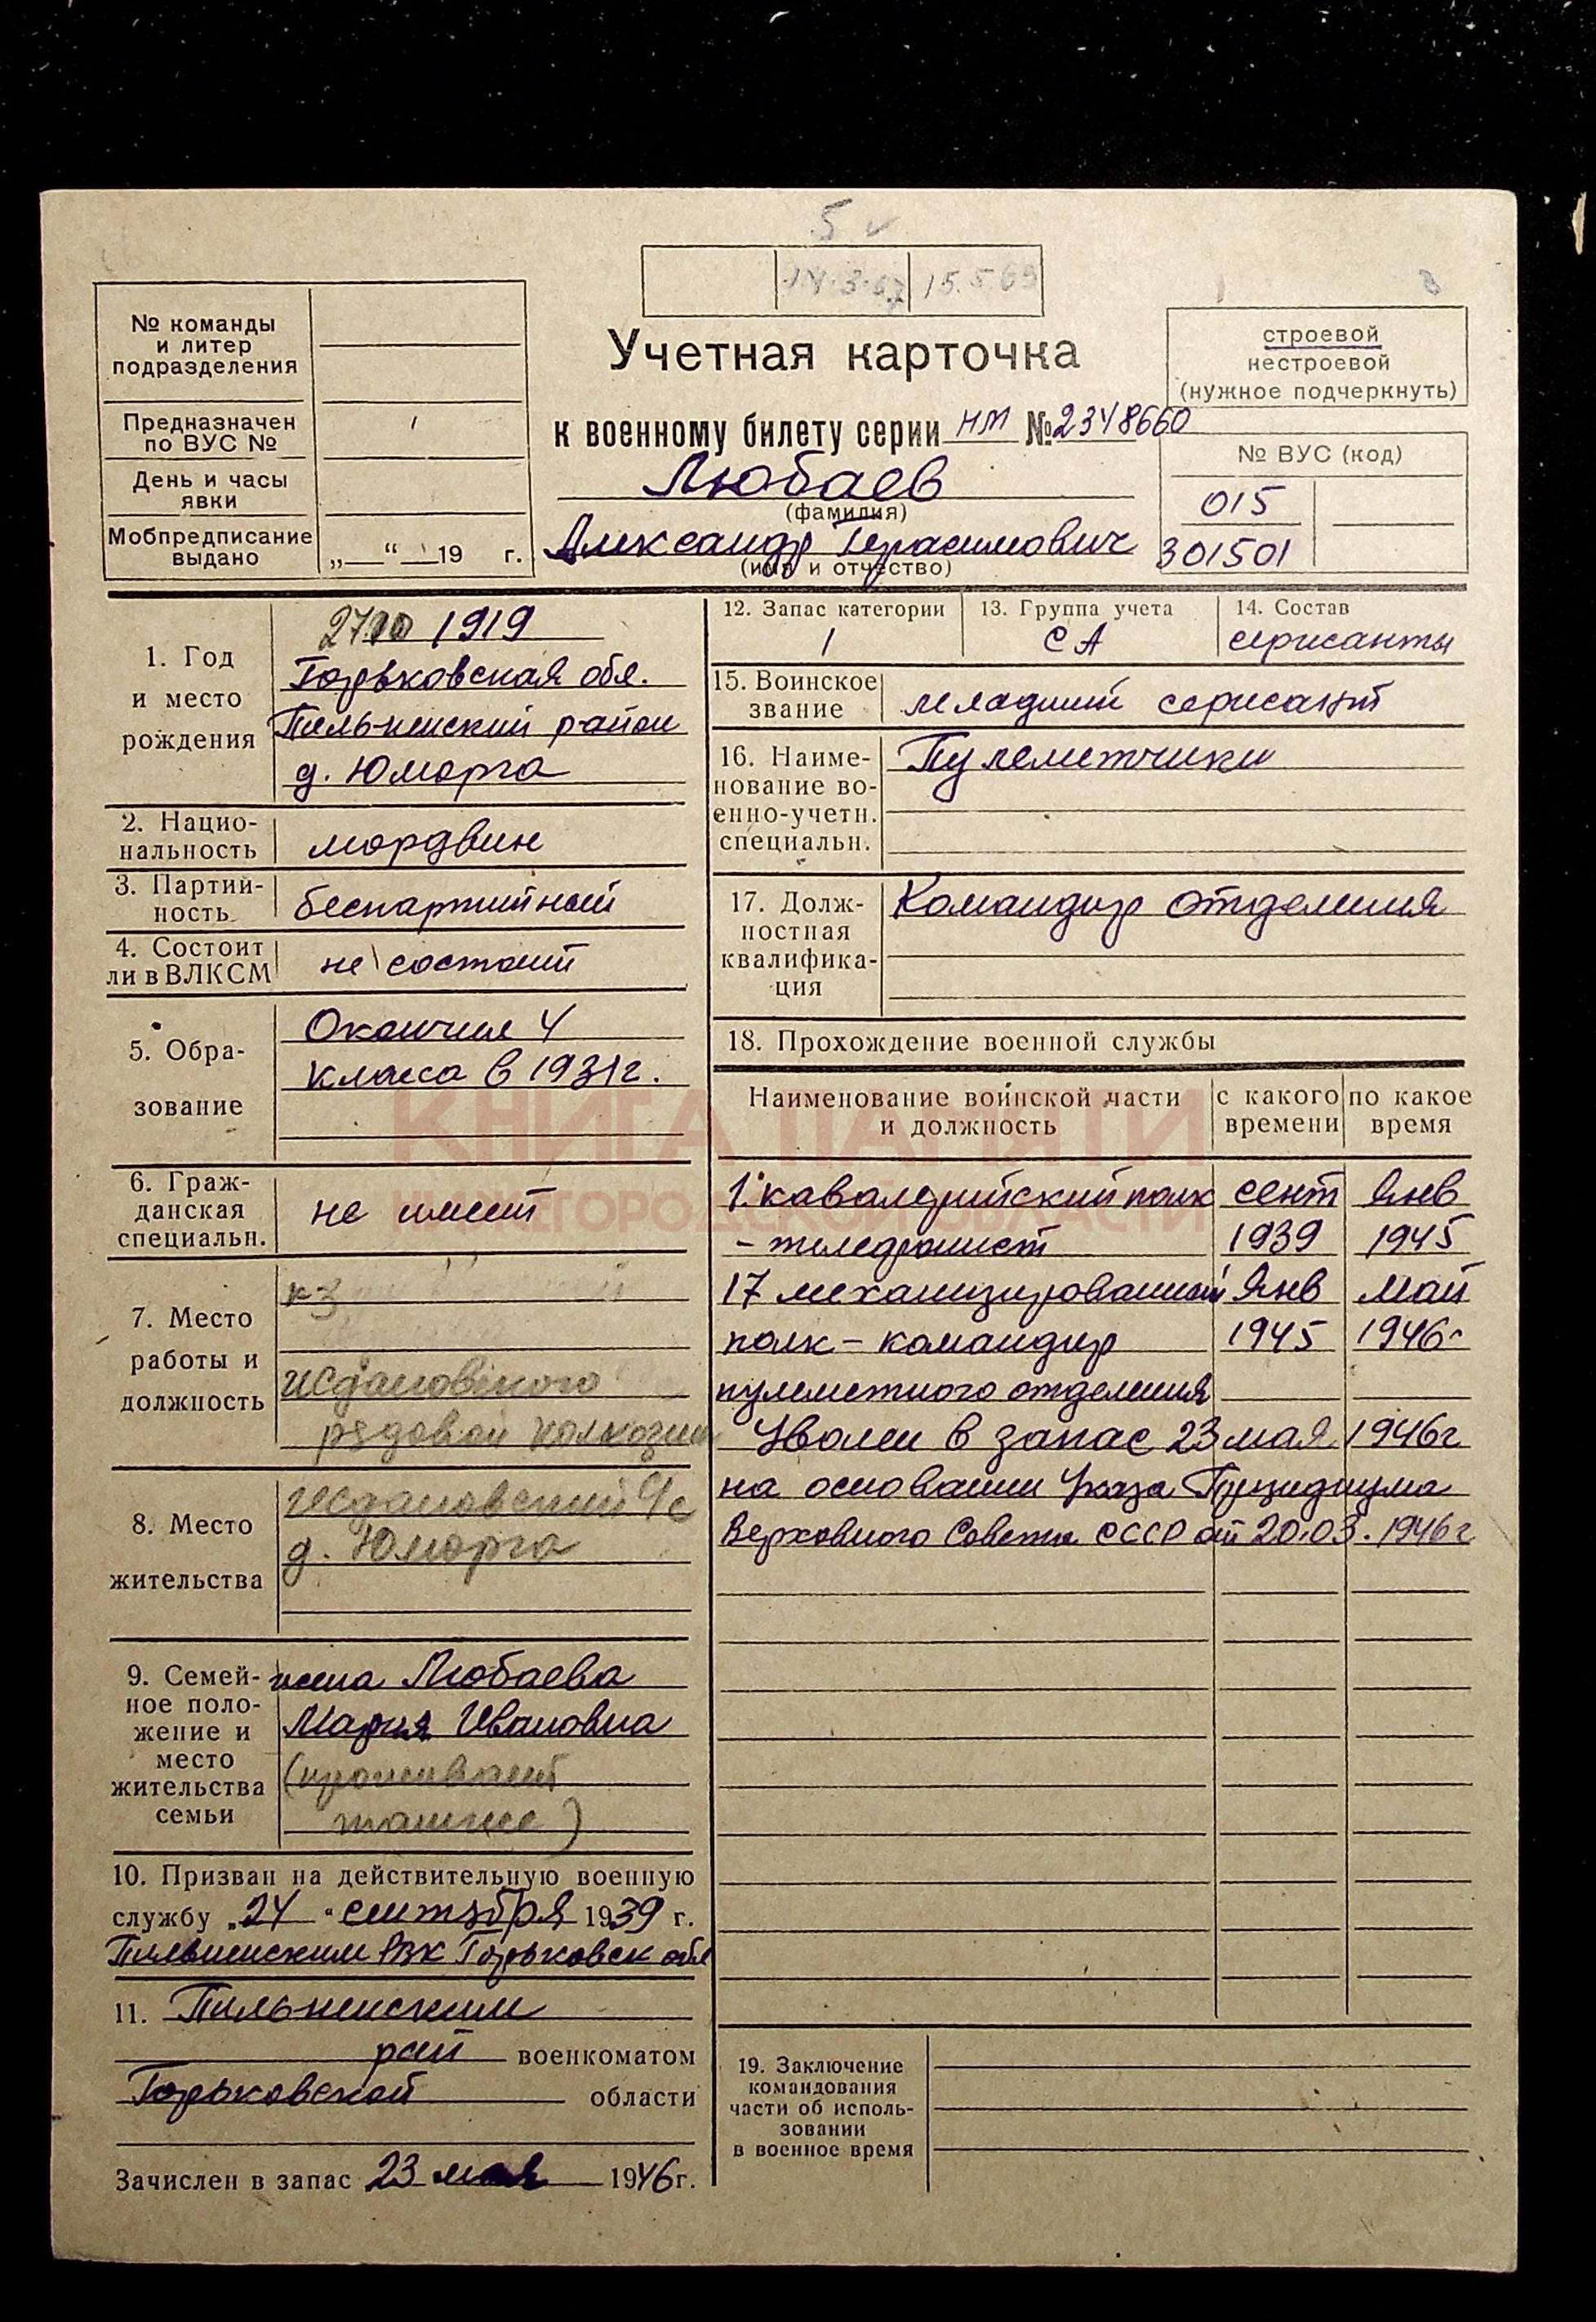 5
14.3.67 15.5.69
№ команды
и литер
подразделения
Предназначен
по ВУС №
День и часы
явки
Мобпредписание
выдано „ “ 19 г.
Учетная карточка
к военному билету серии НМ № 2348660
Любаев
(фамилия)
Александр Герасимович
(имя и отчество)
строевой
нестроевой
(нужное подчеркнуть)
№ ВУС (код)
015
301501
1. Год
и место
рождения
27 10 1919
Горьковская обл.
Пильненский район
д. Юморга
2. Нацио-
нальность
мордвин
3. Партий-
ность
беспартийный
4. Состоит
ли в ВЛКСМ
не состоит
5. Обра-
зование
Окончил 4
класса в 1931г.
6. Граж-
данская
специальн.
не имеет
7. Место
работы и
должность
к-з
Ждановского
рядовой колхозник
8. Место
жительства
Ждановский с/с
д. Юморга
9. Семей-
ное поло-
жение и
место
жительства
семьи
жена Любаева
Мария Ивановна
(проживает
там же)
10. Призван на действительную военную
службу „24“ сентября 1939 г.
Пильненским РВК Горьковск обл
11. Пильненским
рай военкоматом
Горьковской области
Зачислен в запас 23 мая 1946 г.
12. Запас категории
1
13. Группа учета
СА
14. Состав
сержанты
15. Воинское
звание
младший сержант
16. Наиме-
нование во-
енно-учетн.
специальн.
Пулеметчики
17. Долж-
ностная
квалифика-
ция
Командир отделения
18. Прохождение военной службы
Наименование воинской части
и должность
с какого
времени
по какое
время
1. кавалерийский полк сент Янв
- телефонист 1939 1945
17 механизированный Янв Май
полк - командир 1945 1946г
пулеметного отделения
Уволен в запас 23 мая 1946г
на основании Указа Президиума
Верховного Совета СССР от 20.03.1946г
19. Заключение
командования
части об исполь-
зовании
в военное время
КНИГА ПАМЯТИ
НИЖЕГОРОДСКОЙ ОБЛАСТИ